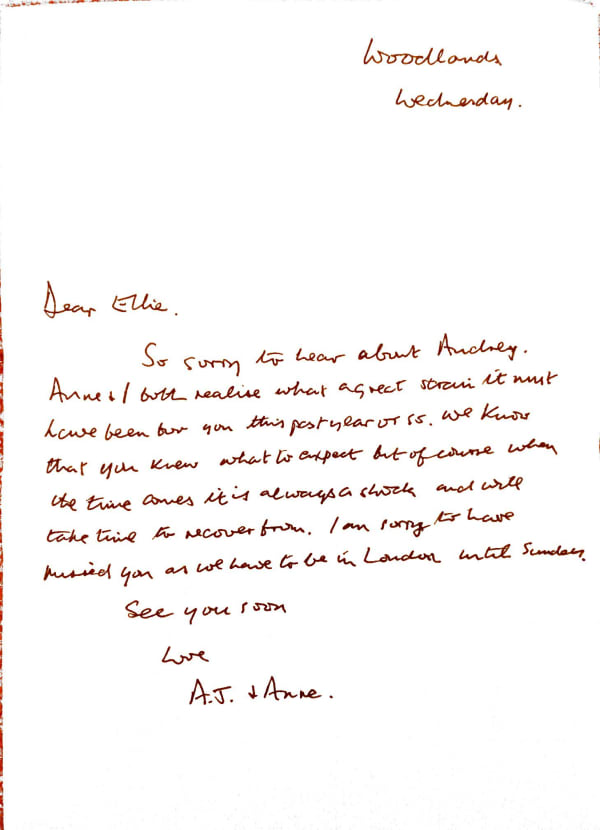 Woodlands
Wednesday.
Dear Ellie.
So sorry to hear about Audrey.
Anne & I both realise what a great strain it must
have been for you this past year or so. We know
that you knew what to expect but of course when
the time comes it is always a shock and will
take time to recover from. I am sorry to have
missed you as we have to be in London until Sunday.
See you soon
Love
A.J. & Anne.